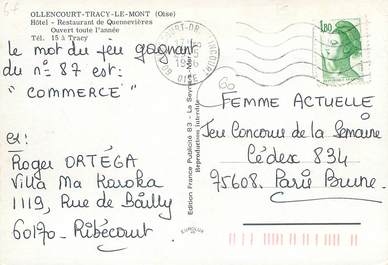 OLLENCOURT-TRACY-LE-MONT (Oise)
Hôtel - Restaurant de Quennevières
Ouvert toute l'année
Tél. 15 à Tracy
le mot du jeu gagnant
du n° 87 est:
"COMMERCE"
ex:
Roger ORTÉGA
Villa Ma Karoka
1119, Rue de Bailly
60170 - Ribécourt
Edition France Publicité 83 - La Seyne-s-Mer
Reproductions interdites
EUROLUX
1,80
OISE
60
FEMME ACTUELLE
Jeu Concours de la Semaine
Cédex 834
75608. Paris Brune.